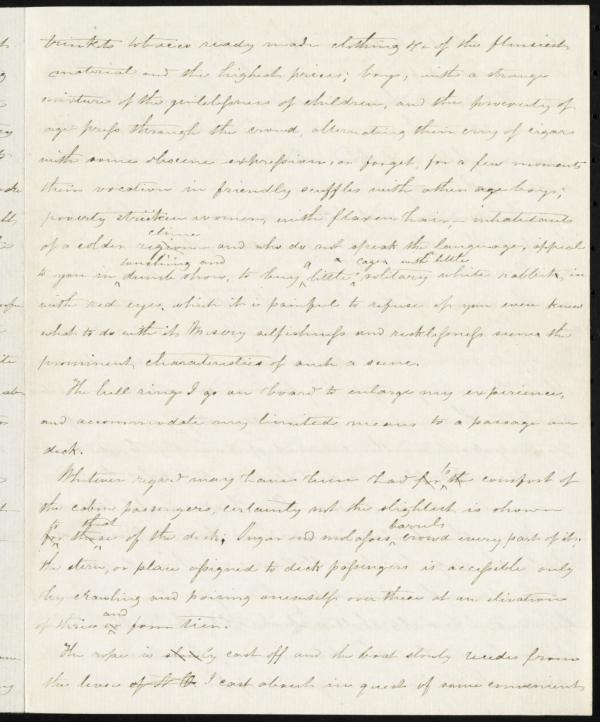 trinkets tobacco ready made clothing &c of the flimsiest
material and the highest prices; boys, with a strange
mixture of the guilelessness of children, and the precocity of
age press through the crowd, alternating their cry of cigars
with some obscene expression, or forget, for a few moments
their vocation in friendly scuffles with other age boys;
poverty stricken women, with flaxen hair, inhabitants
clime
of a colder region and who do not speak the language, appeal
touching and a cages with little
to you in dumb show, to buy little solitary white rabbits, in
with red eyes, which it is painful to refuse if you even knew
what to do with it. Misery selfishness and recklessness seems the
prominent characteristics of such a scene.
The bell rings I go on board to enlarge my experience,
and accommodate my limited means to a passage on
deck.
to
Whatever regard may have been had for the comfort of
the cabin passengers, certainly not the slightest is shown
to that barrels
for those of the deck; Sugar and molasses crowd every part of it.
the stern, or place assigned to deck passengers is accessible only
by crawling and poising oneself over these at an elevation
and
of three or four tiers.
The rope is slowly cast off and the boat slowly recedes from
the levee I cast about in quest of some convenient